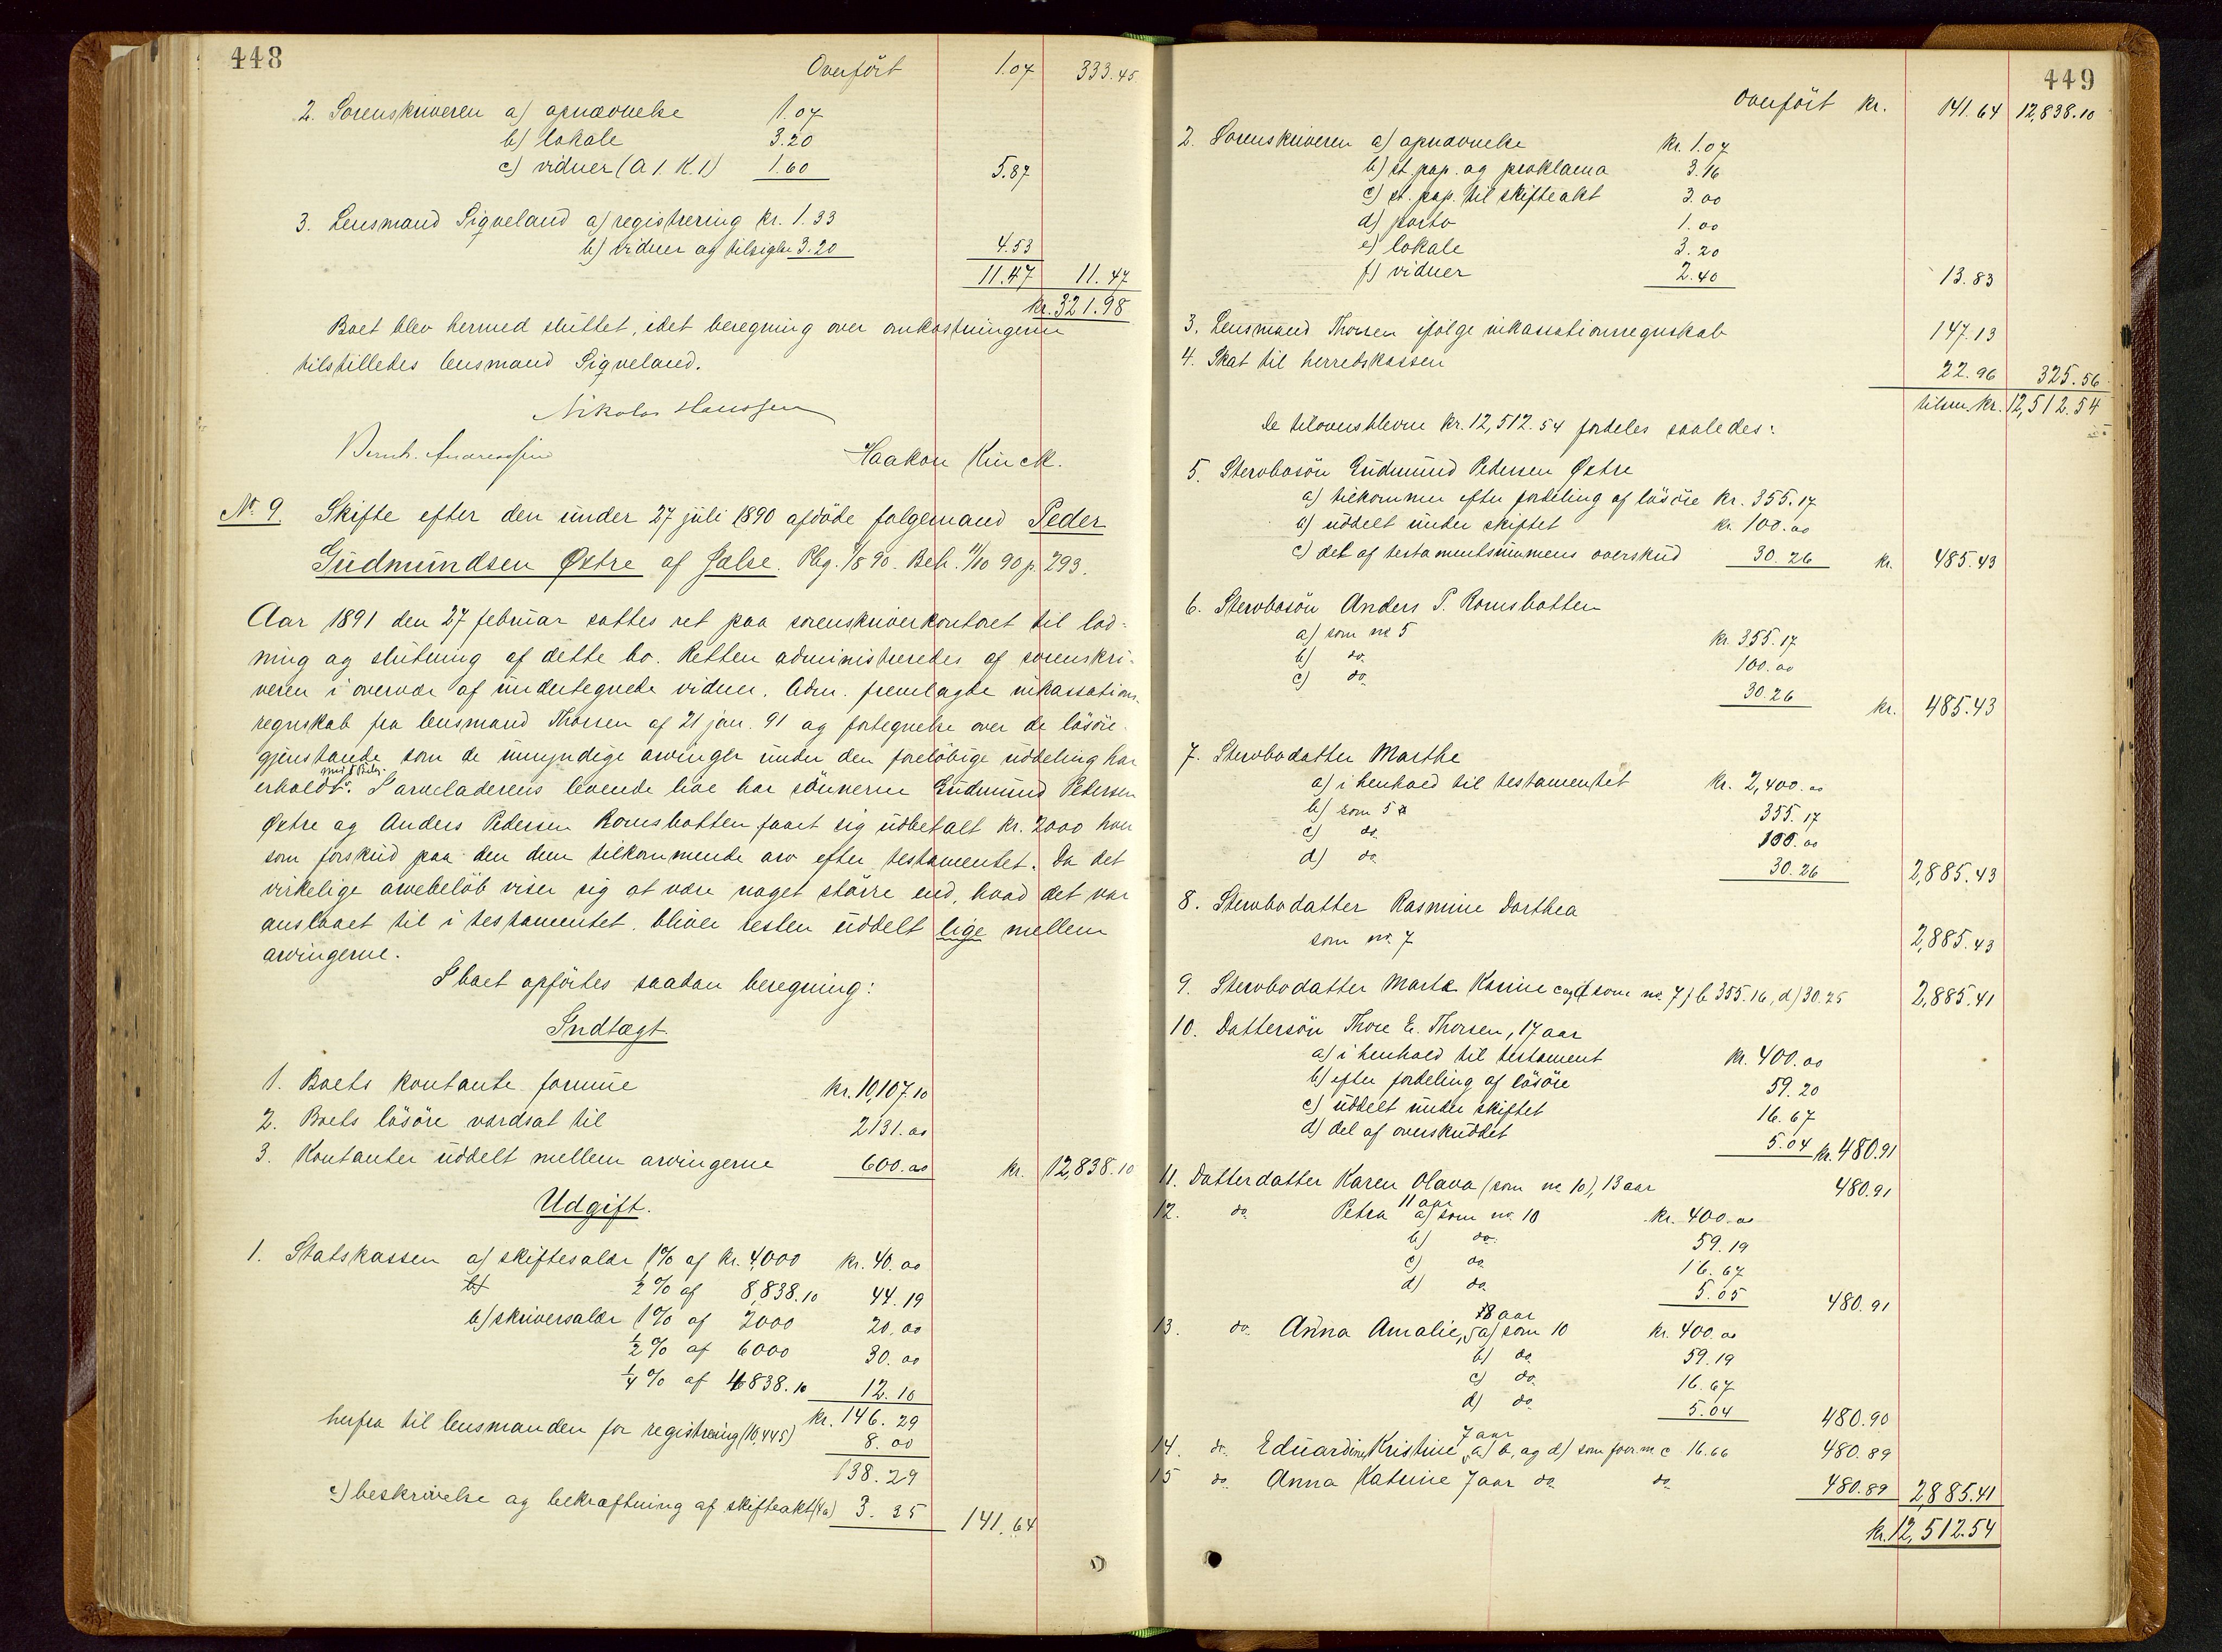 448
Overført 1.07 333.45
2. Sorenskriveren a) opnævnelse 1.07
b) lokale 3.20
c) vidner (A 1. K. 1) 1.60 5.87
3. Lensmand Sigveland a) registrering kr. 1.33
b) vidner og tilsigln. 3.20 4.53
11.47 11.47
kr. 321.98
Boet blev hermed sluttet, idet beregning over omkostningerne
tilstilledes lensmand Sigveland.
Nikolai Hanssen
Bernh. Andreassen Haakon Kinck.
No. 9. Skifte efter den under 27 juli 1890 afdøde følgemand Peder
Gudmundsen Østre af Jælse. Beh. 11/10 90 p. 293.
Aar 1891 den 27 februar sattes ret paa sorenskriverkontoret til lod-
ning og slutning af dette bo. Retten administreredes af sorenskri-
veren i overvær af undertegnede vidner. Adm. fremlagde inkassations-
regnskab fra lensmand Thorsen af 21 jan. 91 og fortegnelse over de løsøre-
gjenstande som de umyndige arvinger under den foreløbige uddeling har
erholdt. I arveladerens levende live har sønnerne Gudmund Pedersen
Østre og Anders Pedersen Romsbotten faaet sig udbetalt kr. 2000 hver
som forskud paa den dem tilkommende arv efter testamentet. Da det
virkelige arvebeløb viser sig at være noget større end, hvad det var
anslaaet til i testamentet, bliver resten uddelt lige mellem
arvingerne.
I boet opførtes saadan beregning:
Indtægt
1. Boets kontante formue kr. 10,107.10
2. Boets løsøre værdsat til 2131.00
3. Kontanter uddelt mellem arvingerne 600.00 kr. 12,838.10
Udgift.
1. Statskassen a) skiftesalær 1% af kr. 4,000 kr. 40.00
b) ½% af 8,838.10 44.19
b) skriversalær 1% af 2000 20.00
½% af 6000 30.00
¼% af 4838.10 12.10
kr. 146.29
herfra til lensmanden for registrering (10,445) 8.00
138.29
c) beskrivelse og bekræftning af skifteakt 3.35 141.64
449
Overført kr. 141.64 12,838.10
2. Sorenskriveren a) opnævnelse kr. 1.07
b) st. pap. og proklama 3.16
c) st. pap. til skifteakt 3.00
d) porto 1.00
e) lokale 3.20
f) vidner 2.40 13.83
3. Lensmand Thorsen ifølge inkassationsregnskab 147.13
4. Skat til herredskassen 22.96 325.56
tilsm. kr. 12,512.54
De tiloversblevne kr. 12,512.54 fordeles saaledes:
5. Stervbosøn Gudmund Pedersen Østre
a) tilkommer efter fordeling af løsøre kr. 355.17
b) uddelt under skiftet kr. 100.00
c) del af testamentsummens overskud 30.26 kr. 485.43
6. Stervbosøn Anders P. Romsbotten
a) som no 5 kr. 355.17
b) do. 100.00
c) do. 30.26 kr. 485.43
7. Stervbodatter Marthe
a) i henhold til testamentet kr. 2,400.00
b) som 5 a 355.17
c) do. 100.00
d) do 30.26 2,885.43
8. Stervbodatter Rasmine Dorthea
som no. 7 2,885.43
9. Stervbodatter Marta Karine som no. 7, b 355.16, d) 30.25 2,885.41
10. Dattersøn Thore E. Thorsen, 17 aar
a) i henhold til testament kr. 400.00
b) efter fordeling af løsøre 59.20
c) uddelt under skiftet 16.67
d) del af overskuddet 5.04 kr. 480.91
11. Datterdatter Karen Olava (som no 10), 13 aar 480.91
12. do. Petra 11 aar a) som no. 10 kr. 400.00
b) do. 59.19
c) do. 16.67
d) do. 5.05 480.91
13. do. Anna Amalie, 8 aar a) som 10 kr. 400.00
b) do. 59.19
c) do. 16.67
d) do. 5.04 480.90
14. do. Eduardine Kristine, 7 aar a) b, og d) som c 16.66 480.89
15 do. Anna Katrine 7 aar do. do. 480.89 2885.41
kr. 12,512.54